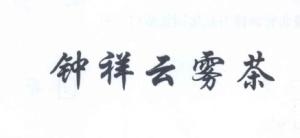 钟祥云雾茶